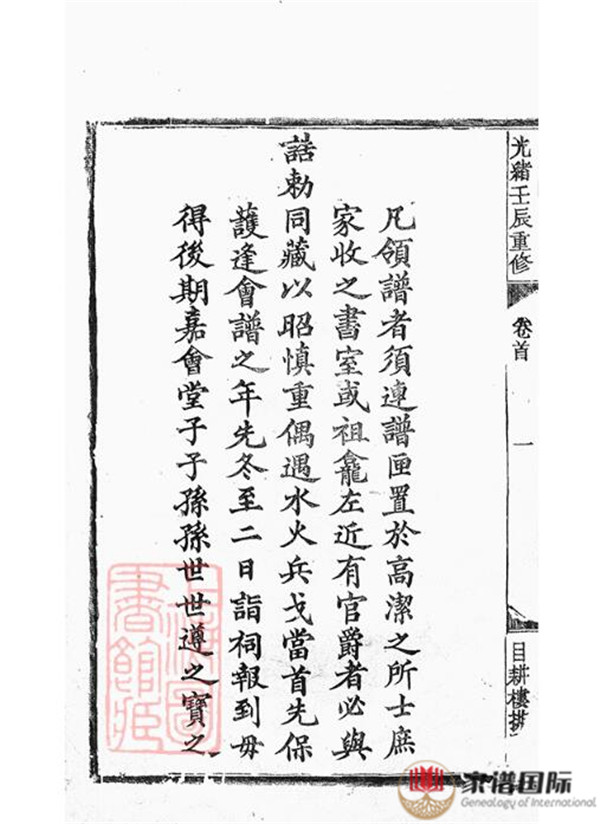 光緒壬辰重修
卷首
一
目耕樓
凡領譜者須連譜匣置於高潔之所士庶
家收之書室或祖龕左近有官爵者必與
誥勅同藏以昭慎重偶遇水火兵戈當首先保
護逢會譜之年先冬至二日詣祠報到毋
得後期嘉會堂子子孫孫世世遵之寶之
上海圖
書館藏
家谱国际
Genealogy of International